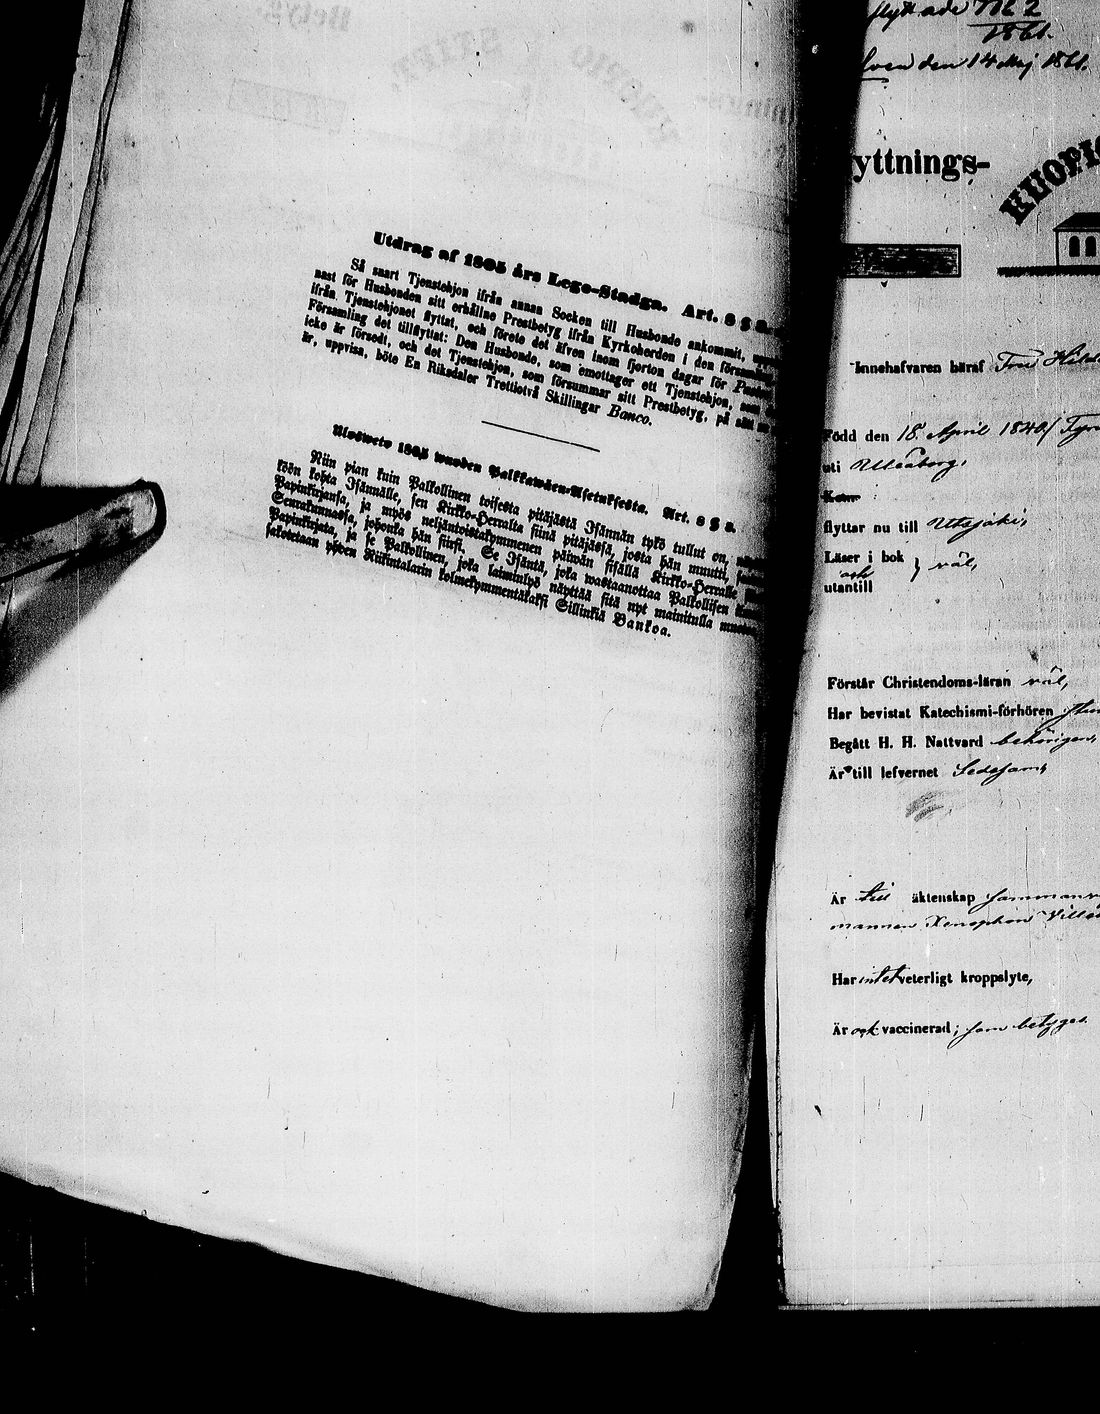 Utdrag af 1805 års Lego-Stadga. Art. 8 §
Så snart Tjenstehjon ifrån annan Socken till Husbonde ankommit,
nast för Husbonden sitt erhållne Prestbetyg ifrån Kyrkoherden i den församling
ifrån Tjenstehjonet flyttat, och förete det äfven inom fjorton dagar för
Församling det tillflyttat: Den Husbonde, som emottager ett Tjenstehjon, som
icke är försedt, och det Tjenstehjon, som försummar sitt Prestbetyg, på sätt
är, uppvisa, böte En Riksdaler Trettiotvå Skillingar Banco.
Ulosweto 1805 wuoden Palkkawäen-Asetuksesta. Art. 8 § 2.
Niin pian kuin Palkollinen toisesta pitäjästä Isännän tykö tullut on,
köön kohta Isännälle, sen Kirkko-Herralta siinä pitäjässä, josta hän muutti,
Papinkirjansa, ja myös neljäntoistakymmenen päiwän sisällä Kirkko-Herralle
Seurakunnassa, johonka hän siirsi. Se Isäntä, joka wastaanottaa Palkollisen
Papinkirjata, ja se Palkollinen, joka laiminlyö näyttää sitä nyt mainitulla
sakotetaan yhteen Riikintalariin kolmekymmentäkaksi Sillinkiä Bankoa.
flyttade No 2
1861.
den 14 Maj 1861.
yttnings-
KUOPIO
Innehafvaren häraf Fru
Född den 18 April 1840
uti Uleåborg,
flyttar nu till Utsjoki,
Läser i bok
och } väl,
utantill
Förstår Christendoms-läran väl,
Har bevistat Katechismi-förhören
Begått H. H. Nattvard behörigen,
Är till lefvernet Sedesam,
Är till äktenskap
mannen Xenophon
Har intet veterligt kroppslyte,
Är ock vaccinerad; som betygar